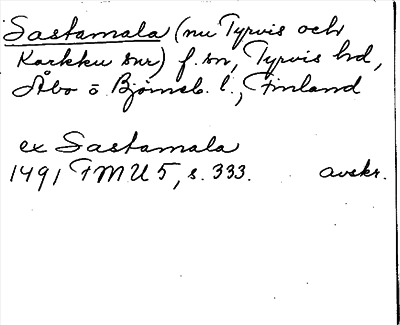 Sastamala (nu Tyrvis och
Karkku snr) f. sn, Tyrvis hd,
Åbo o Björneb. l., Finland
ex Sastamala
1491 FMU 5, s. 333. avskr.